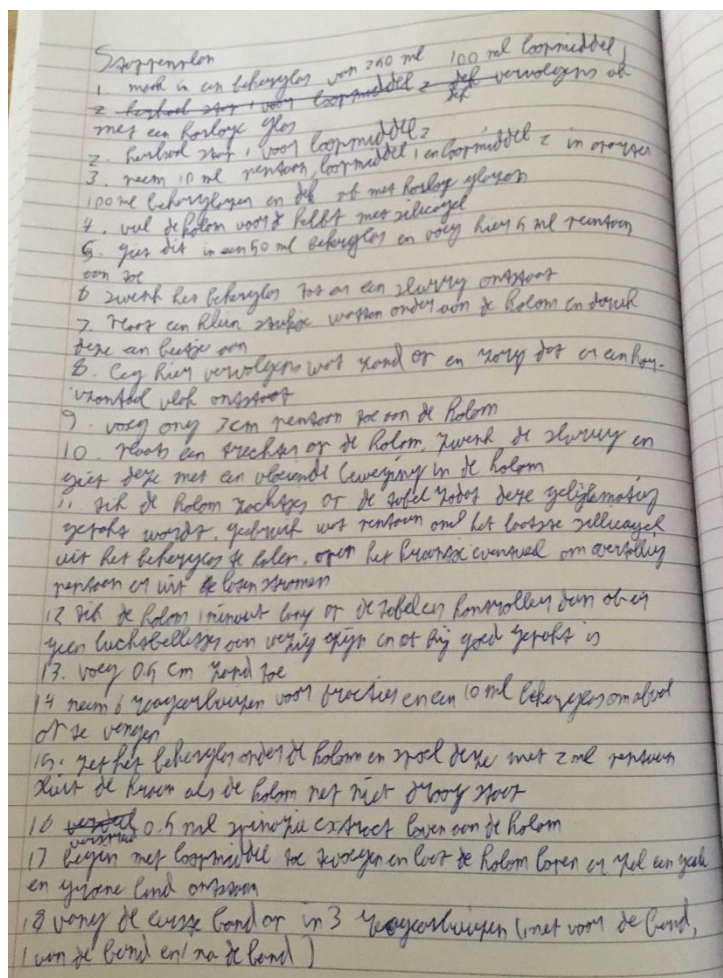 Stappenplan
1 maak in een bekerglas van 250 ml 100 ml loopmiddel 1
2 herhaal stap 1 voor loopmiddel 2 dek vervolgens af
met een horloge glas
2. herhaal stap 1 voor loopmiddel 2
3. neem 10 ml pentaan, loopmiddel 1 en loopmiddel 2 in
100 ml bekerglazen en dek af met horloge glazen
4. vul de kolom voor de helft met silicagel
5. giet dit in een 50 ml bekerglas en voeg hier 5 ml pentaan
aan toe
6 zwenk het bekerglas tot er een slurry ontstaat
7. Plaats een klein stukje watten onder aan de kolom en douw
deze een beetje aan
8. Leg hier vervolgens wat zand op en zorg dat er een hori-
zontaal vlak ontstaat
9. voeg ong 7cm pentaan toe aan de kolom
10. Plaats een trechter op de kolom. zwenk de slurry en
giet deze met een vloeiende beweging in de kolom
11. tik de kolom zachtjes op de tafel zodat deze gelijkmatig
gepakt wordt. gebruik wat pentaan om het laatste sillicagel
uit het bekerglas te halen. open het kraantje eventueel om overtollig
pentaan er uit te laten stromen
12 tik de kolom 1 minuut lang op de tafel en kontrolleer dan of er
geen luchtbelletjes aan wezig zijn en of hij goed gepakt is
13. voeg 0.5 cm zand toe
14 neem 6 reageerbuizen voor fracties en een 10 ml bekerglas om afval
op te vangen
15. zet het bekerglas onder de kolom en spoel deze met 2 ml pentaan
sluit de kraan als de kolom net niet droog staat
16 0.5 ml spinazie extract boven aan de kolom
17 begin met loopmiddel toe te voegen en laat de kolom lopen er zal een gele
en groene band ontstaan
18 vang de eerste band op in 3 reageerbuizen (1 net voor de band,
1 van de band en 1 na de band)